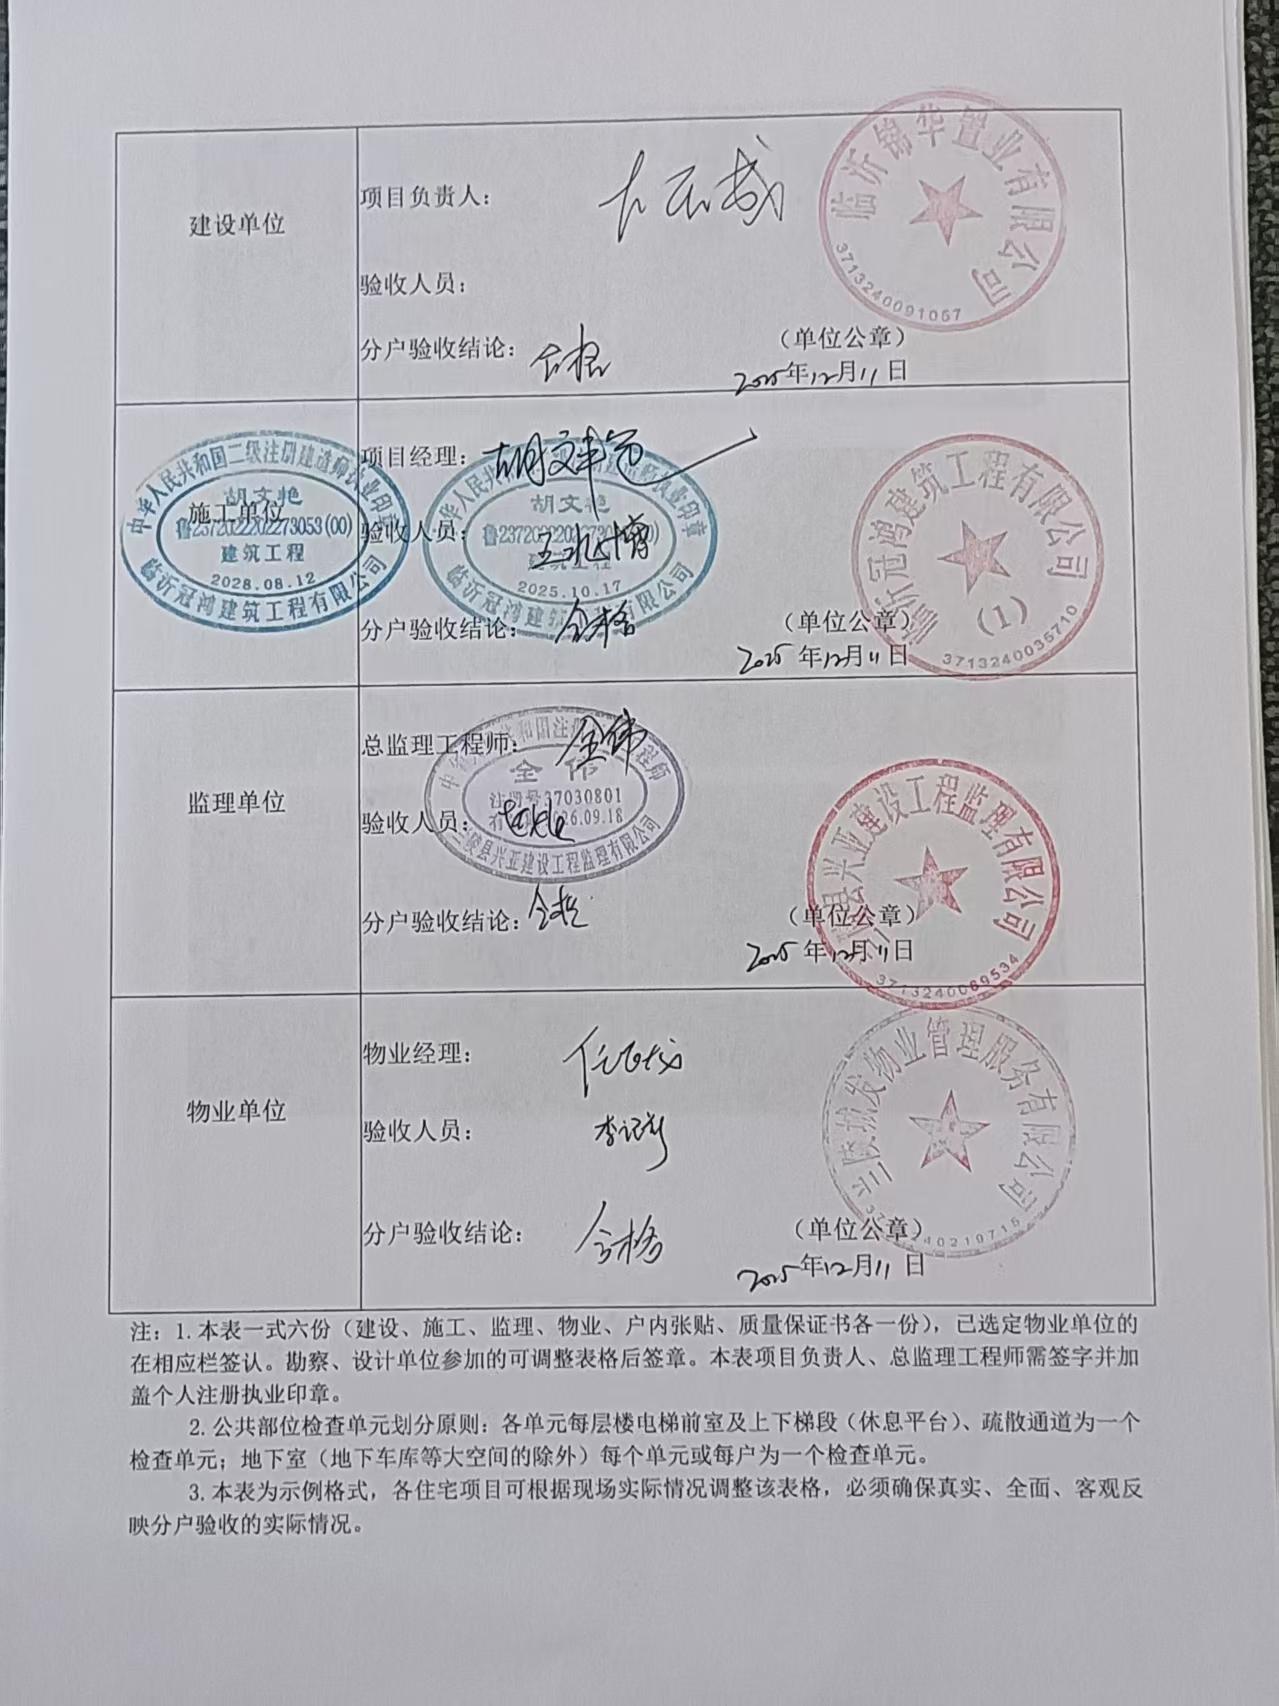 临沂锦华置业有限公司
3713240091057
建设单位
项目负责人：
验收人员：
分户验收结论：合格
（单位公章）
2025年12月11日
中华人民共和国二级注册建造师执业印章
胡文艳
鲁2372022202273053(00)
建筑工程
2028.08.12
临沂冠鸿建筑工程有限公司
施工单位
项目经理：胡文艳
胡文艳
验收人员：
建筑工程
2025.10.17
临沂冠鸿建筑工程有限公司
分户验收结论：合格
临沂冠鸿建筑工程有限公司
(1)
3713240035710
（单位公章）
2025年12月11日
监理单位
总监理工程师：全伟
全伟
注册号37030801
26.09.18
兰陵县兴亚建设工程监理有限公司
验收人员：
分户验收结论：合格
兰陵县兴亚建设工程监理有限公司
3713240069534
（单位公章）
2025年12月11日
物业单位
物业经理：
验收人员：
分户验收结论：合格
兰陵城发物业管理服务有限公司
（单位公章）
2025年12月11日
注：1.本表一式六份（建设、施工、监理、物业、户内张贴、质量保证书各一份），已选定物业单位的
在相应栏签认。勘察、设计单位参加的可调整表格后签章。本表项目负责人、总监理工程师需签字并加
盖个人注册执业印章。
2.公共部位检查单元划分原则：各单元每层楼电梯前室及上下梯段（休息平台）、疏散通道为一个
检查单元；地下室（地下车库等大空间的除外）每个单元或每户为一个检查单元。
3.本表为示例格式，各住宅项目可根据现场实际情况调整该表格，必须确保真实、全面、客观反
映分户验收的实际情况。